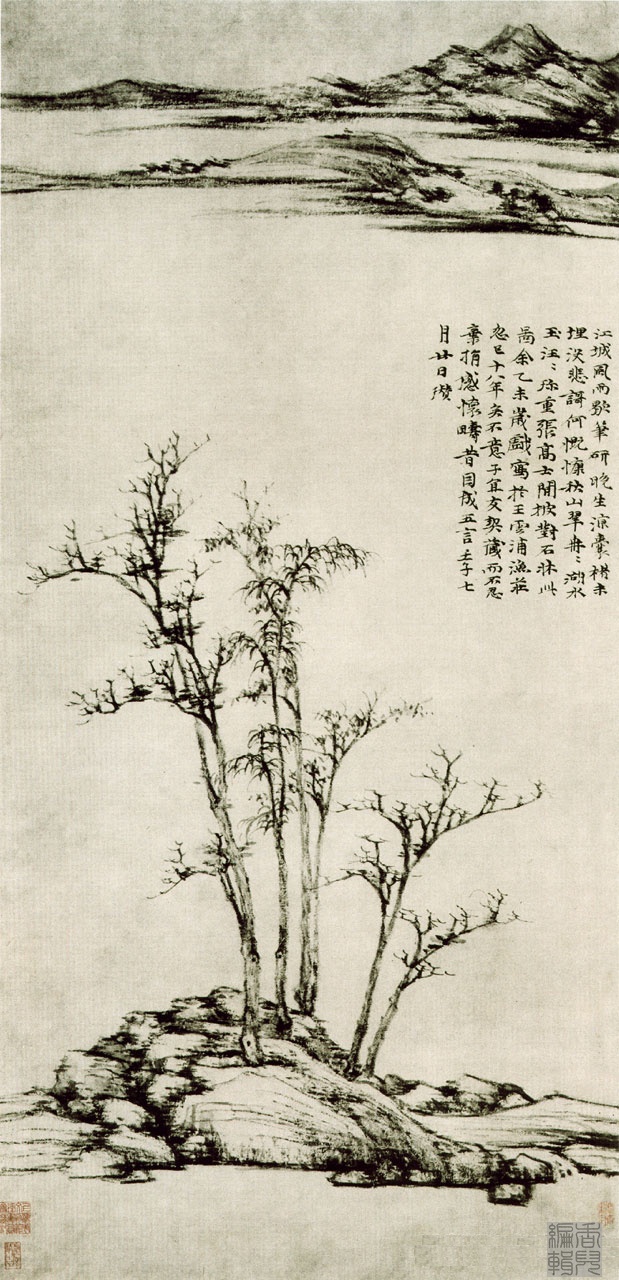 江城風雨歇筆研晚生涼囊楮未
埋沒悲謌何慨慷秋山翠冉〻湖水
玉汪〻珍重張高士閒披對石牀此
圖余乙未歲戲寫於王雲浦漁莊
忽已十八年矣不意子宜友契藏而不忍
棄捐感懷疇昔因成五言壬子七
月廿日瓚
香兒
編輯